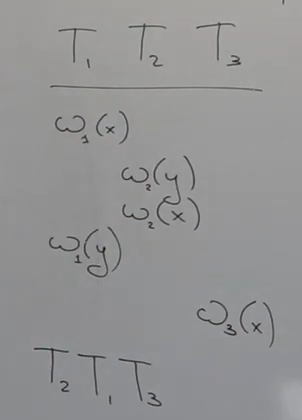 T₁ T₂ T₃
ω₁(x)
ω₂(y)
ω₂(x)
ω₁(y)
ω₃(x)
T₂ T₁ T₃